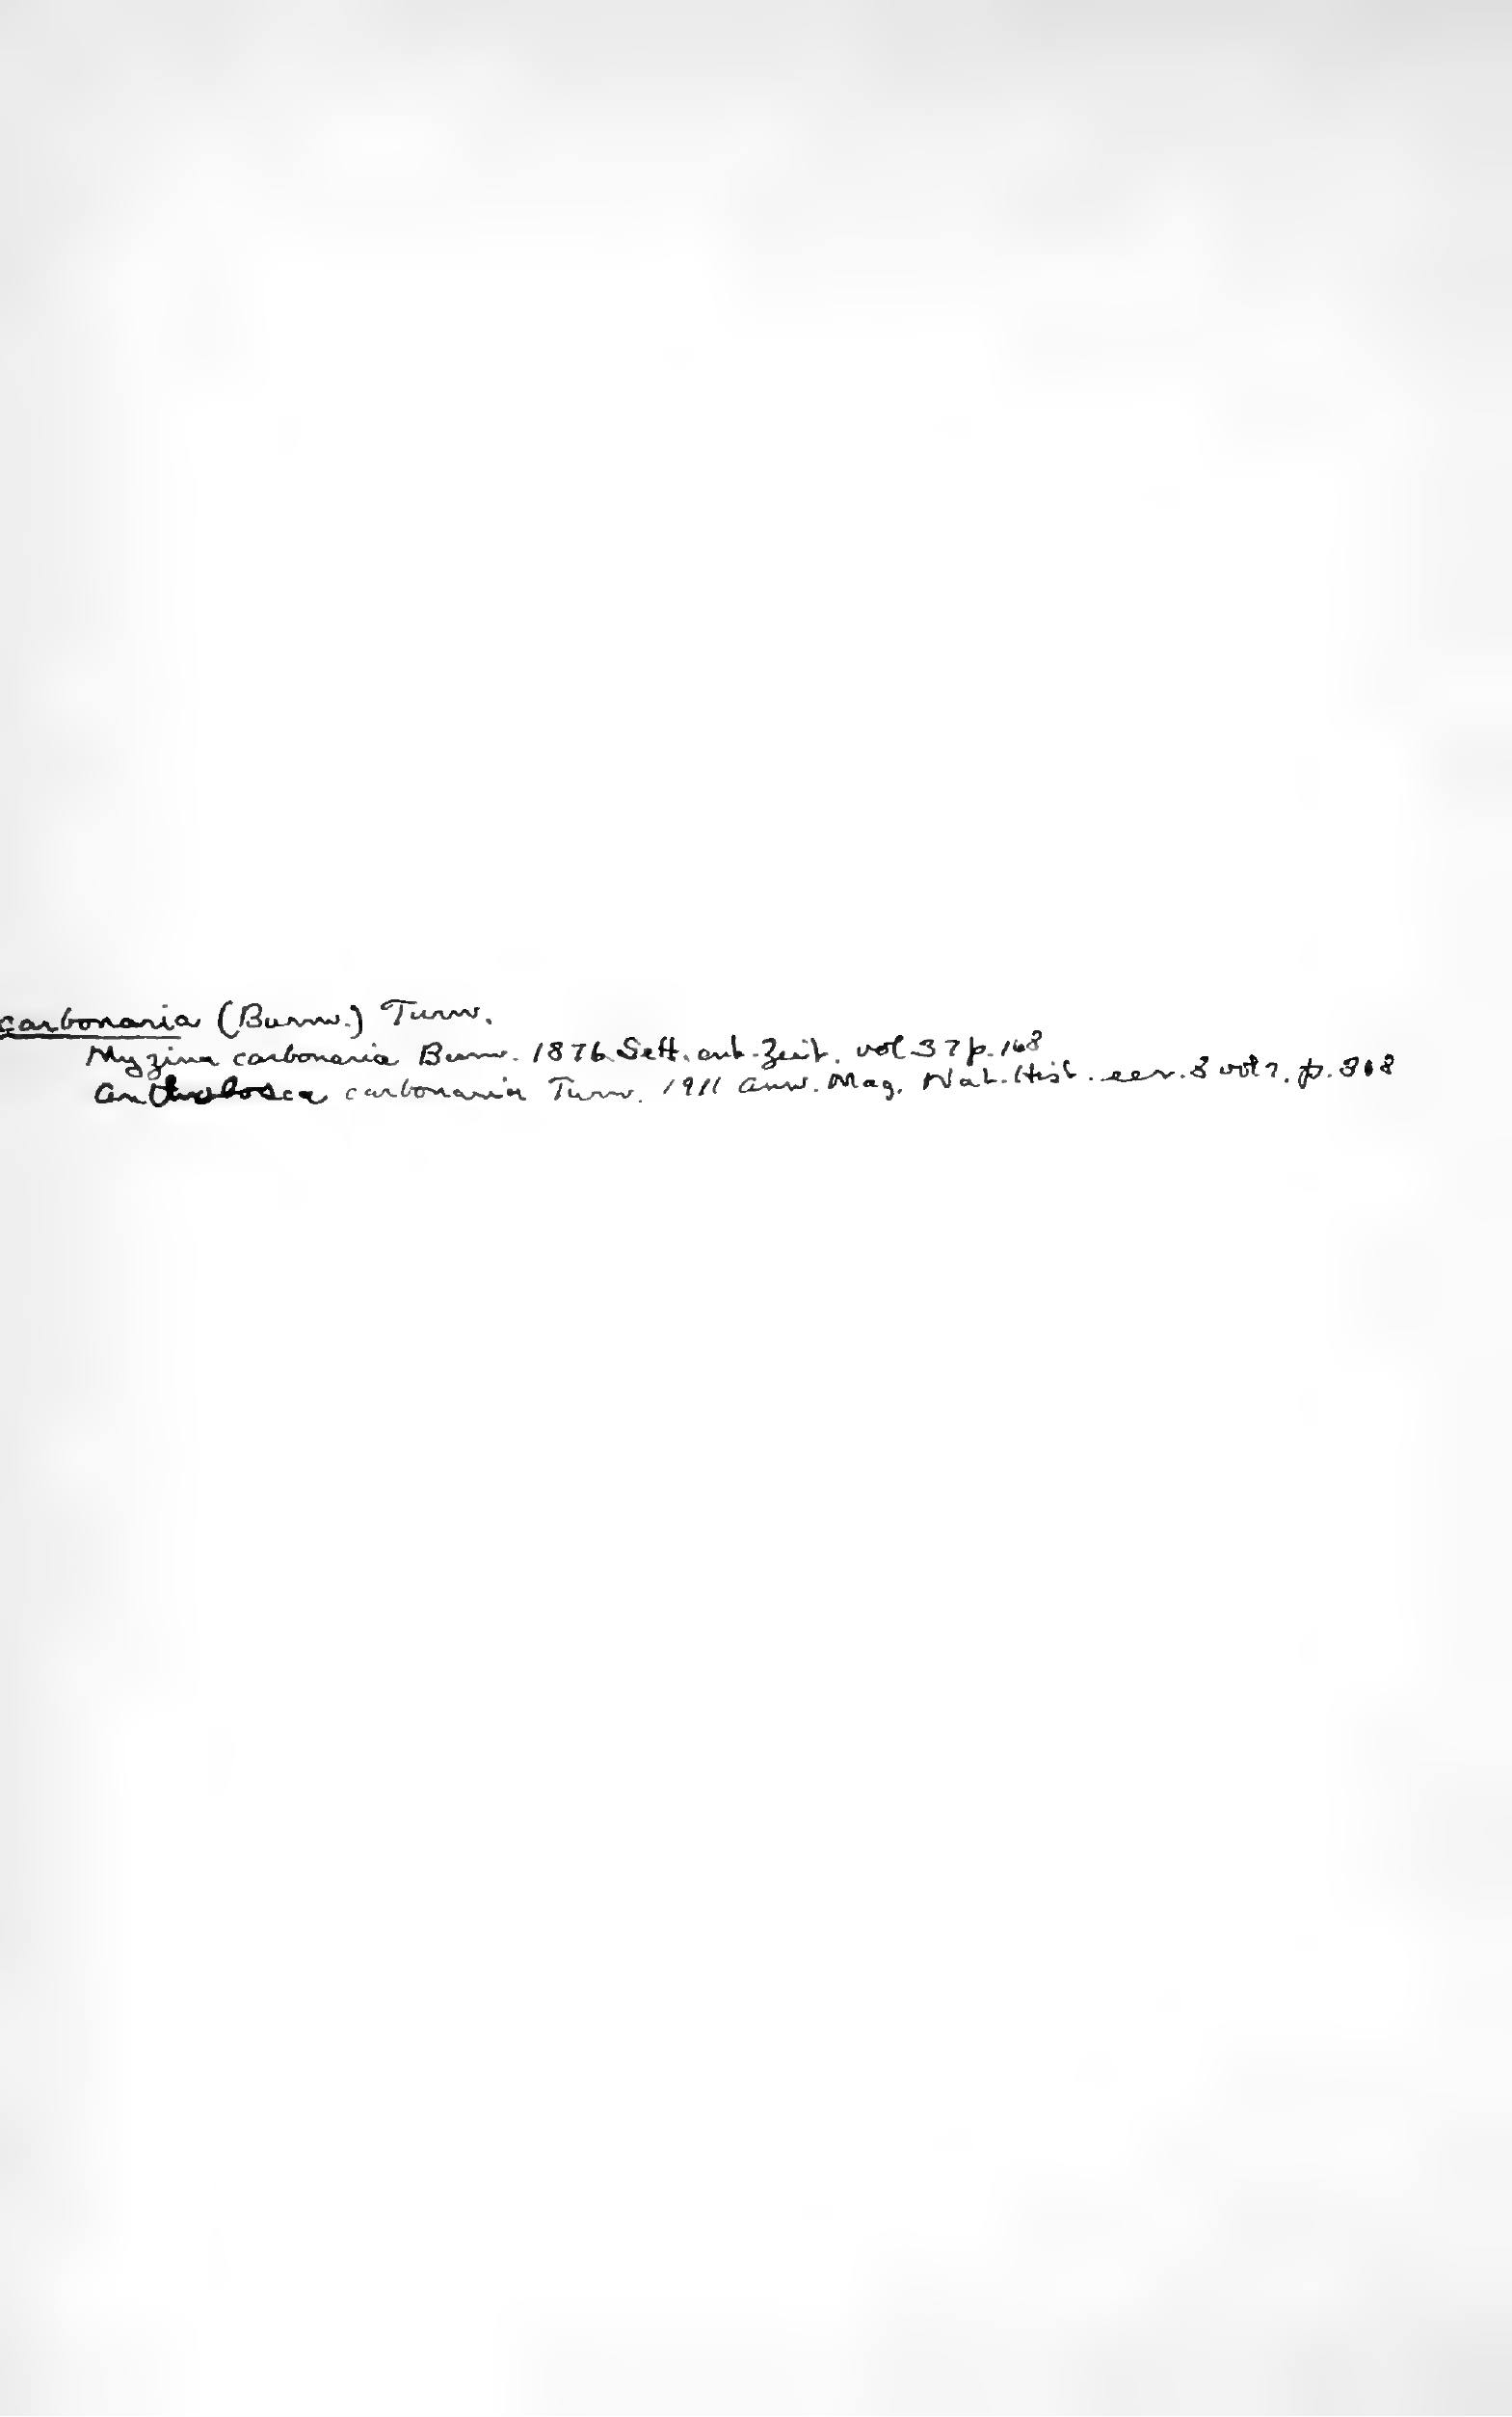 carbonaria (Burm.) Turn.
Myzina carbonaria Burm. 1876 Sett. ent. Zeit. vol 37 p. 168
Anthobosca carbonaria Turn. 1911 Ann. Mag. Nat. Hist. ser. 8 vol 7. p. 308